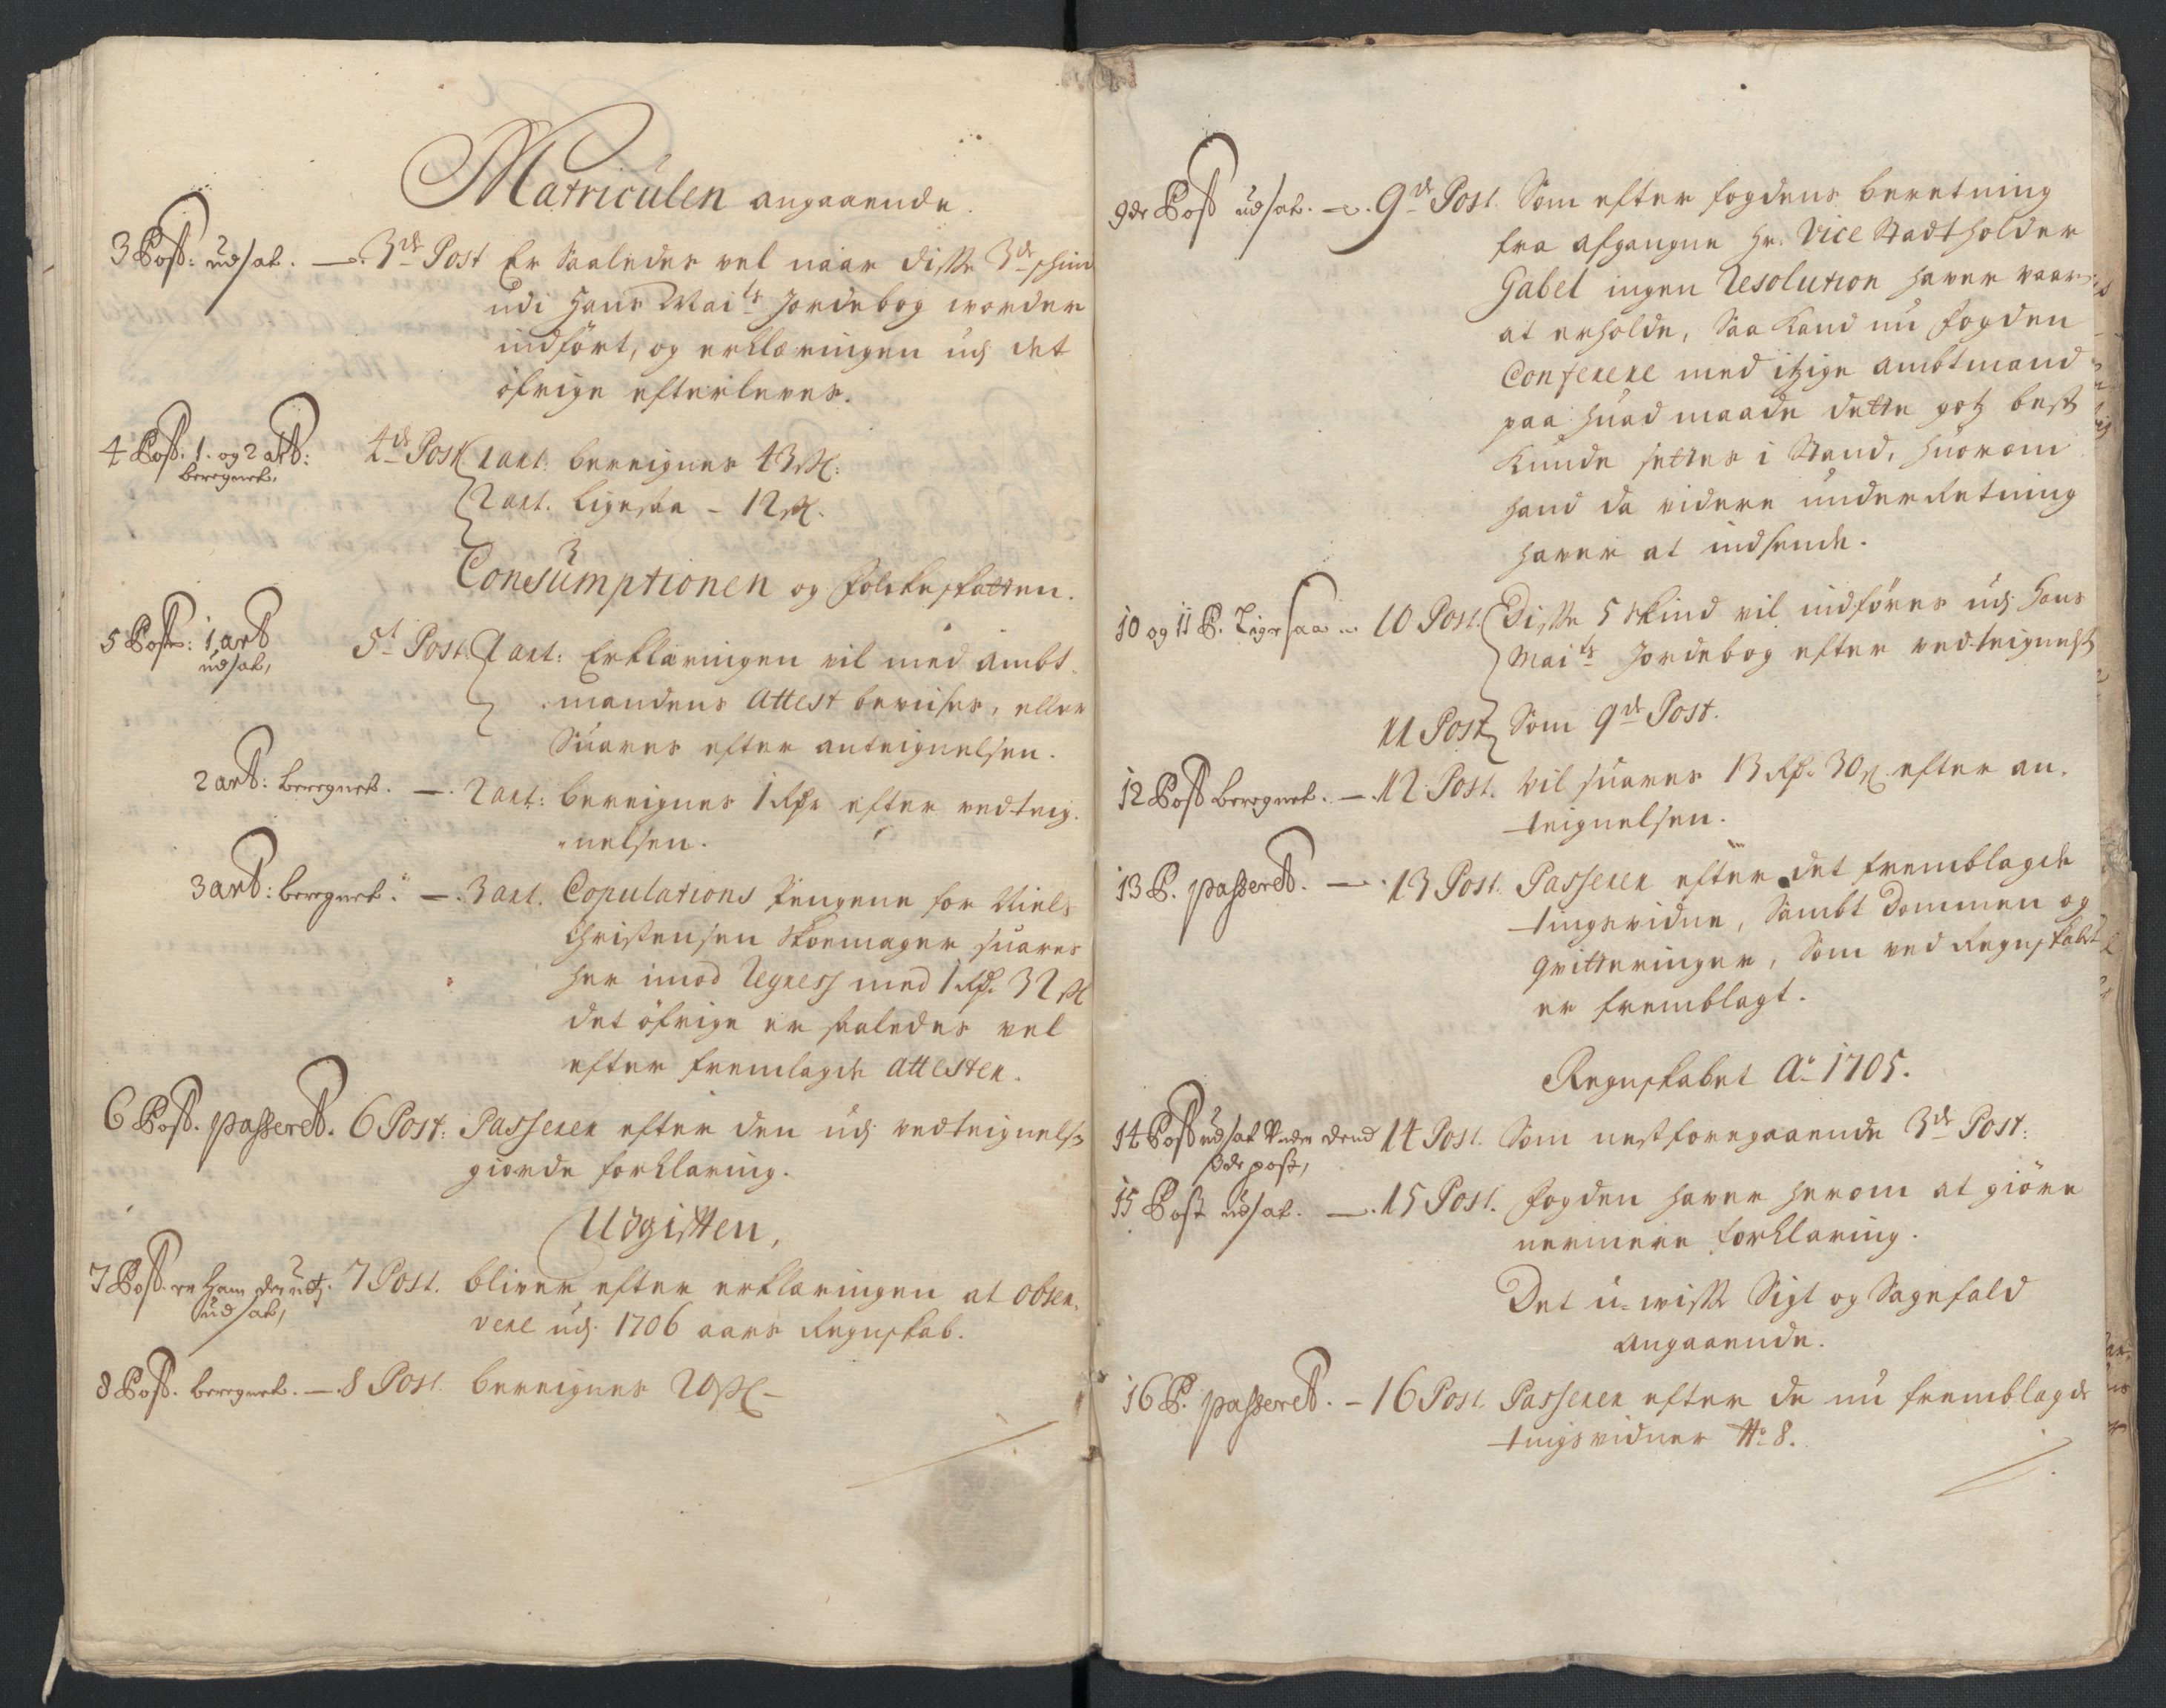 Matriculen angaaende.
3 Post: udsat. —. 3de Post Er Saaledes vel naar disse 3de schind
udi Hans Maits Jordebog worder
indfört, og erklæringen udj det
öfrige efterleves.
4 Post. 1. og 2 art: 4de Post. 1 art: bereignes 43 ß:
beregnet,
2 art. Ligesaa - 12 ß.
Consumptionen og Folcke skatten.
5 Post: 1 art 5t Post. 1 art: Erklæringen vil med Ambt-
udsat,
mandens Attest bevises, eller
Suares efter anteignelsen.
2 art: beregnet. —. 2 art: bereignes 1 Rdr efter vedteig-
nelsen.
3 art: beregnet. —. 3 art. Copulations Pengene for Niels
Christensen Skoemager suares
her imod Regress med 1 Rdr. 32 ß
det öfrige er saaledes vel
efter fremlagde Attester.
6 Post. passeret. 6 Post: Passerer efter den udj vedteignelse
giorde forklaring.
Udgiften,
7 Post. er ham 7 Post. bliver efter erklæringen at obser-
udsat,
vere udj 1706 aars Regnskab.
8 Post. beregnet. —. 8 Post. bereignes 20 ß —
9de Post udsat. —. 9de Post. Som efter fogdens beretning
fra afgangne Hr. Vice Stadtholder
Gabel ingen Resolution haver vaaren
at erholde, Saa kand nu fogden
Conferere med itzige Ambtmand
paa huad maade dette gotz best
kunde settes i Stand, huorom
hand da videre underretning
haver at indsende.
10 og 11 P. Ligesaa 10 Post. Disse 5 skind vil indföres udj Hans
Maits Jordebog efter vedteignelsen
11 Post Som 9de Post.
12 Post beregnet. —. 12 Post. Vil suares 13 Rdr. 30 ß efter an-
teignelsen.
13 P. passeret. —. 13 Post. Passerer efter det fremblagde
tingsvidne, Sambt Dommen og
qvitteringer, Som ved Regnskabet
er fremblagt.
Regnskabet Ao 1705.
14 Post udsat Under dend 14 Post. Som nestforegaaende 3de Post:
3de post,
15 Post udsat. —. 15 Post. Fogden haver herom at giöre
nermere forklaring.
Det u-wisse Sigt og Sagefald
Angaaende.
16 P. passeret. — 16 Post. Passerer efter de nu fremblagde
tingsvidner No 8.